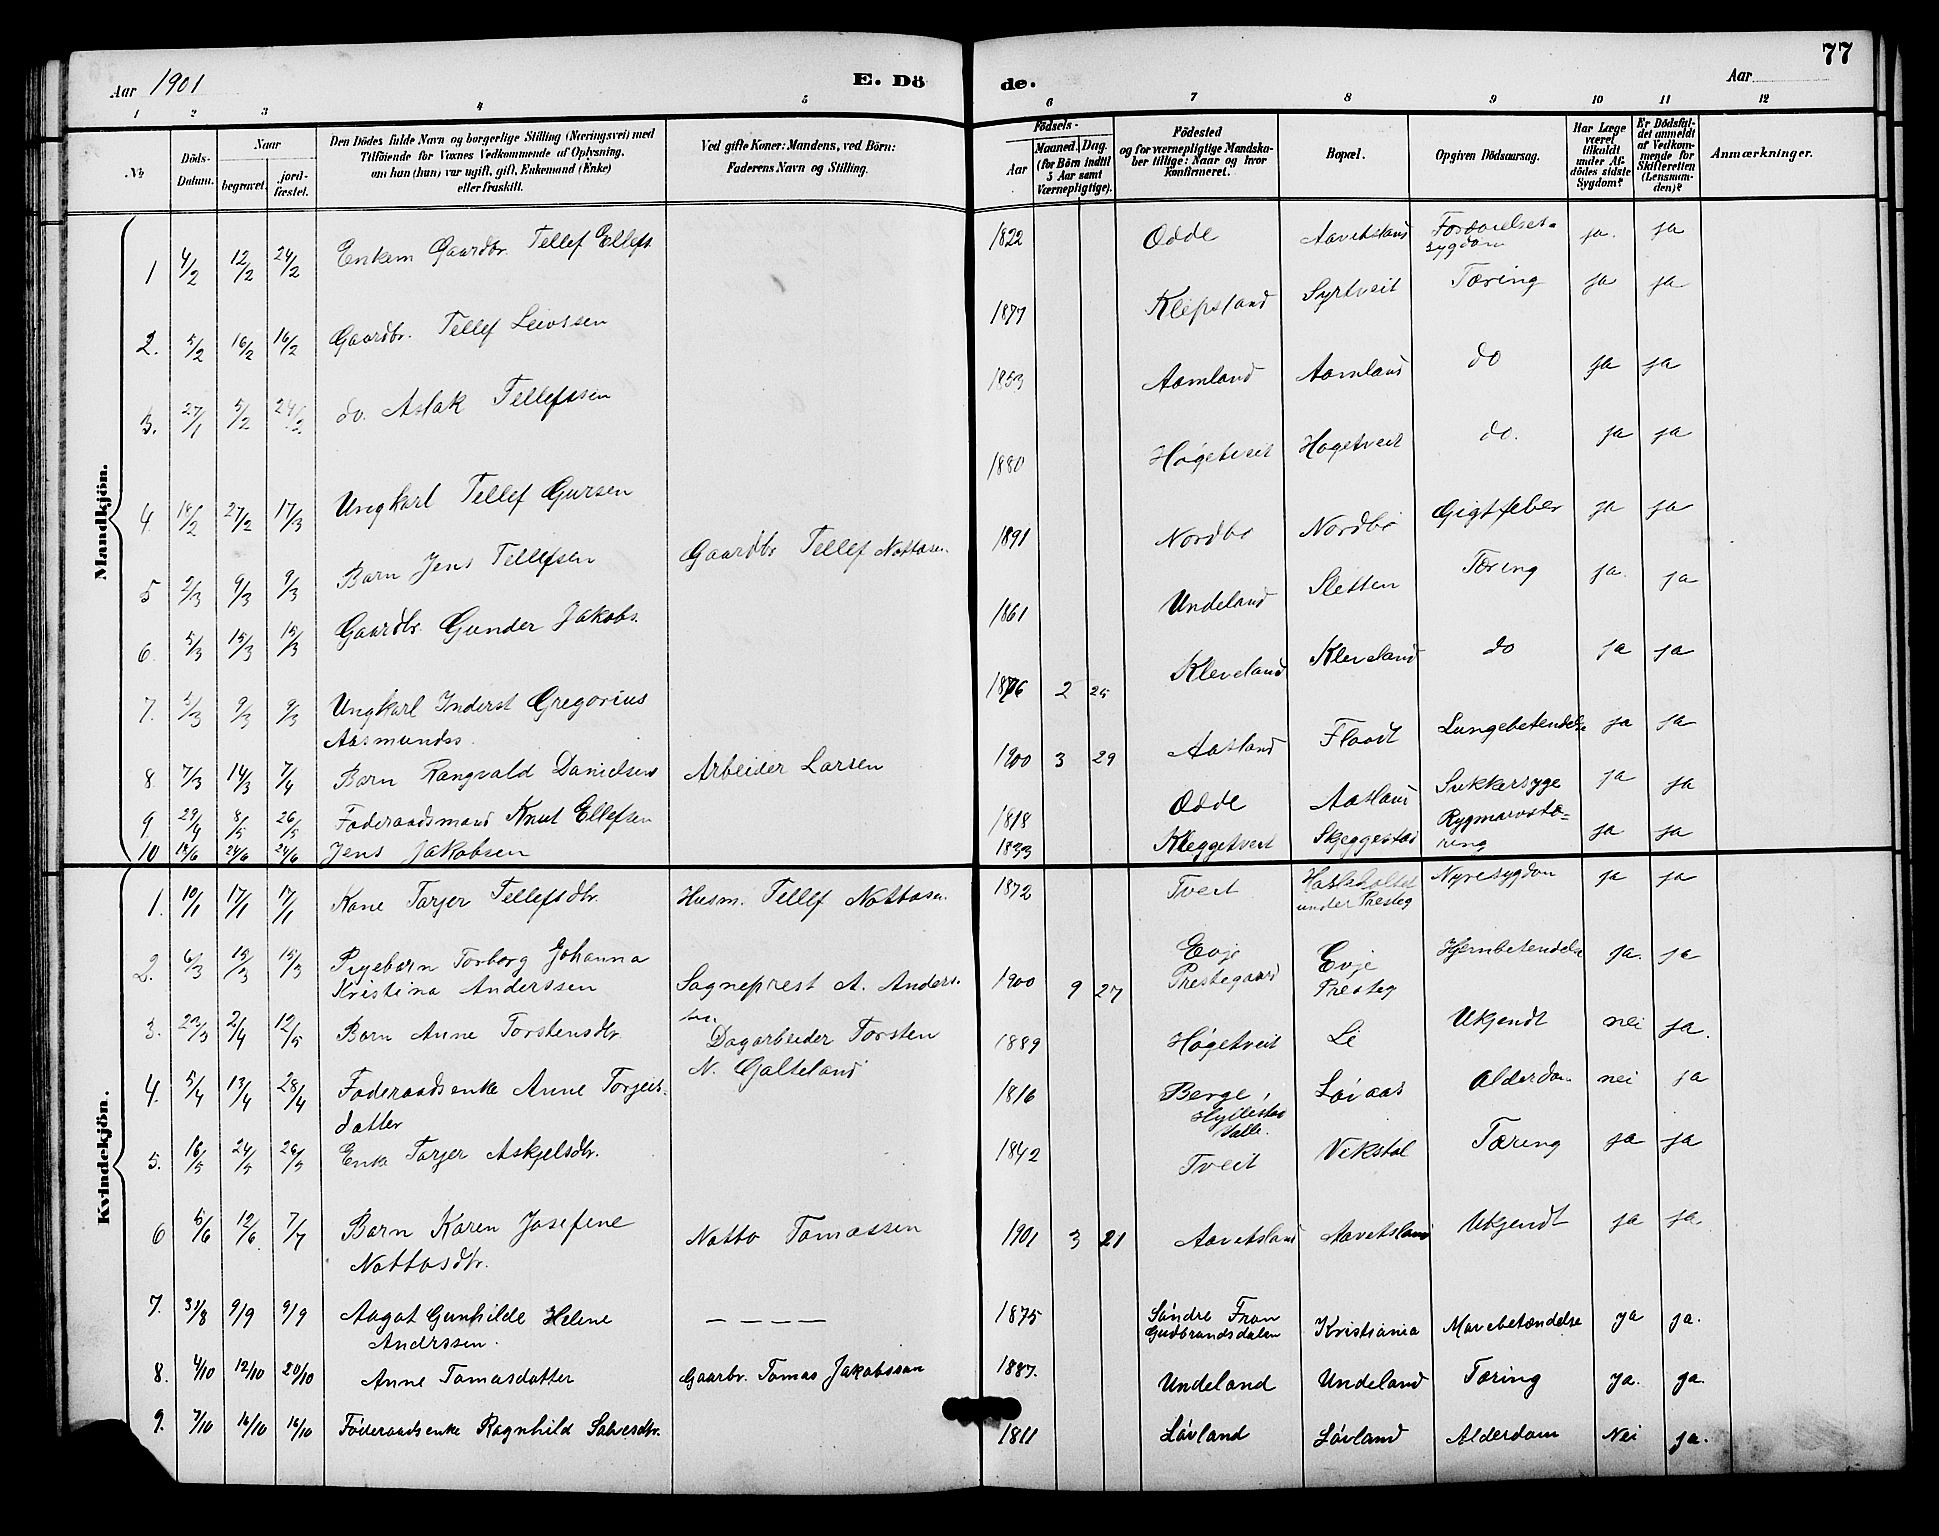 77
Aar 1901
E. Dö de.
Aar
1 2 3 4 5 6 7 8 9 10 11 12
No
Döds-Datum.
Naar
begravet.
jord-fæstet.
Den Dödes fulde Navn og borgerlige Stilling (Næringsvei) med
Tilföiende for Voxnes Vedkommende af Oplysning,
om han (hun) var ugift, gift, Enkemand (Enke)
eller fraskilt.
Ved gifte Koner: Mandens, ved Börn:
Faderens Navn og Stilling.
Födsels-
Aar
Maaned. Dag.
(for Börn indtil
5 Aar samt
Værnepligtige).
Födested
og for værnepligtige Mandska-
ber tillige: Naar og hvor
Konfirmeret.
Bopæl.
Opgiven Dödsaarsag.
Har Læge
været
tilkaldt
under Af-
dödes sidste
Sygdom?
Er Dödsfal-
det anmeldt
af Vedkom-
mende for
Skifteretten
(Lensman-
den)?
Anmærkninger.
Mandkjön.
1 4/2 12/2 24/2 Enkem Gaardbr. Tellef Ellefs. 1822 Odde Aavitsland sygdom ja. ja
2. 5/2 16/2 16/2 Gaardbr. Tellef Leivssen 1877 Klepsland Syrtveit Tæring ja ja
3. 27/1 5/2 24/2 do. Aslak Tellefssen 1853 Aamland Aamland do ja ja
4. 18/2 27/2 17/3 Ungkarl Tellef Gursen 1880 Høgetveit Høgetveit do. ja ja
5 2/3 9/3 9/3 Barn Jens Tellefsen Gaardbr Tellef Nottosen. 1891 Nordbø Nordbø Gigtfeber ja ja
6. 5/3 15/3 15/3 Gaardbr. Gunder Jakobs. 1861 Undeland Sletten Tæring ja. ja
7. 1/3 9/3 9/3 Ungkarl Inderst Gregorius
Aasmundss. 1876 2 25 Kleveland Kleveland do ja ja
8. 7/3 14/3 7/4 Barn Rangvald Danielsen Arbeider Larsen 1900 3 29 Aasland Flaadt Lungebetendelse ja ja
9 29/4 8/5 26/5 Føderaadsmand Knut Ellefsen 1818 Odde Aasland Sukkersyge ja ja
10 18/6 24/6 24/6 Jens Jakobsen 1833 Kleggetveit Skjeggestad Rygmarvstæ=
ring ja ja
Kvindekjön.
1. 10/1 17/1 17/1 Kone Tarjer Tellefsdtr. Husm. Tellef Nottosen. 1872 Tveit
under Presteg Nyresygdom ja ja
2. 6/3 15/3 15/3 Pigebarn Torborg Johanna
Kristina Anderssen Sogneprest A. Anders-
sen 1900 9 27 Evje
Prestegaard Evje
Presteg Hjernbetendelse ja. ja
3. 23/3 2/4 12/5 Barn Anne Torstensdtr. Dagarbeider Torsten
N. Galteland 1889 Høgetveit Li Ukjendt nei ja.
4. 5/4 13/4 28/4 Føderaadsenke Anne Torjeis-
datter 1816 Berge,
Hyllestad
Valle. Løvaas Alderdom nei ja
5. 16/5 24/5 26/5 Enke Tarjer Askjelsdtr. 1842 Tveit Vikstøl Tæring ja ja
6 6/6 12/6 7/7 Barn Karen Josefine
Nottosdtr. Notto Tomassen 1901 3 21 Aavitsland Aavitsland Ukjendt ja ja
7. 31/8 9/9 9/9 Aagot Gunhilde Helene
Andrssen. — — — — 1875 Søndre Fron
Gudbrandsdalen Kristiania Mavebetændelse ja ja.
8. 4/10 12/10 20/10 Anne Tomasdatter Gaarbr. Tomas Jakobsson 1887. Undeland Undeland Tæring ja. ja.
9. 7/10 16/10 16/10 Føderaadsenke Ragnhild Salvesdtr. 1811 Løvland Løvland Alderdom Nei ja.